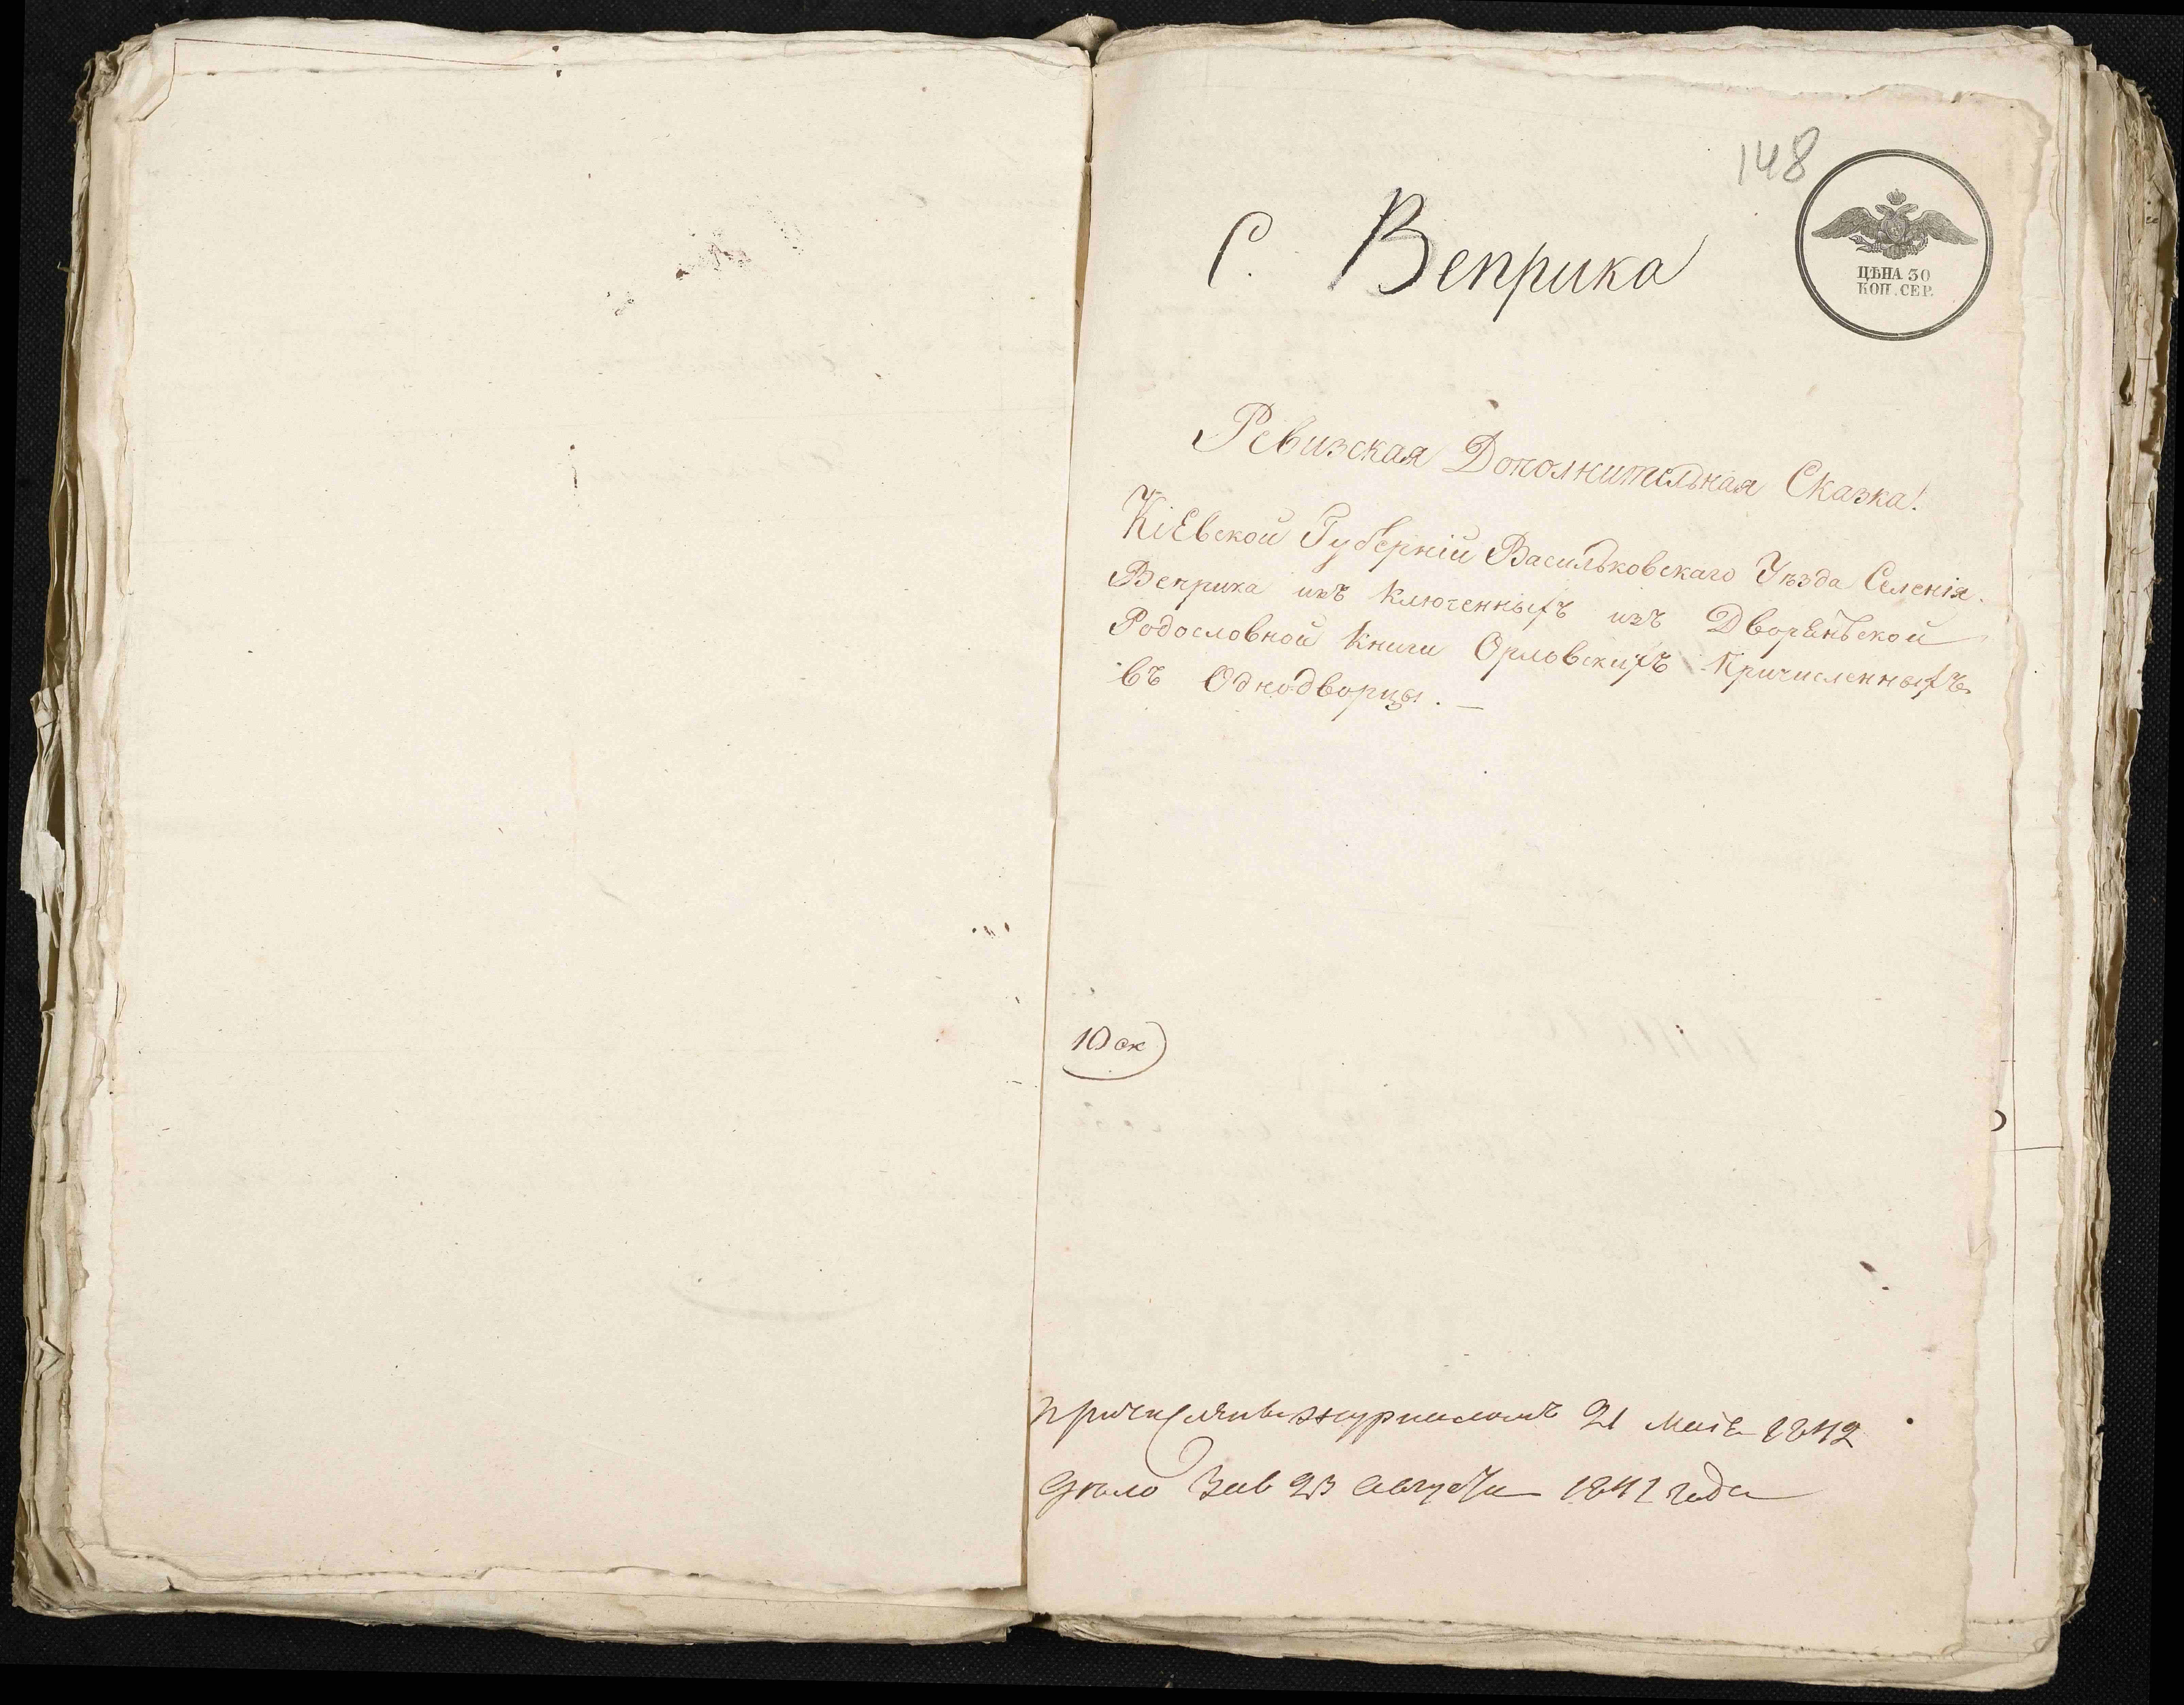 148
ЦѢНА 30
КОП. СЕР.
С. Веприка
Ревизская Дополнительная Сказка!
Кіевской Губерніи Васильковскаго Уѣзда Селенія.
Веприка изъ ключенныхъ изъ Дворянской
Родословной Книги Орловскихъ Причисленныхъ
въ Однодворцы. —
10 ск
журналомъ 21 маія 1842
дѣло 23 августа 1841 года